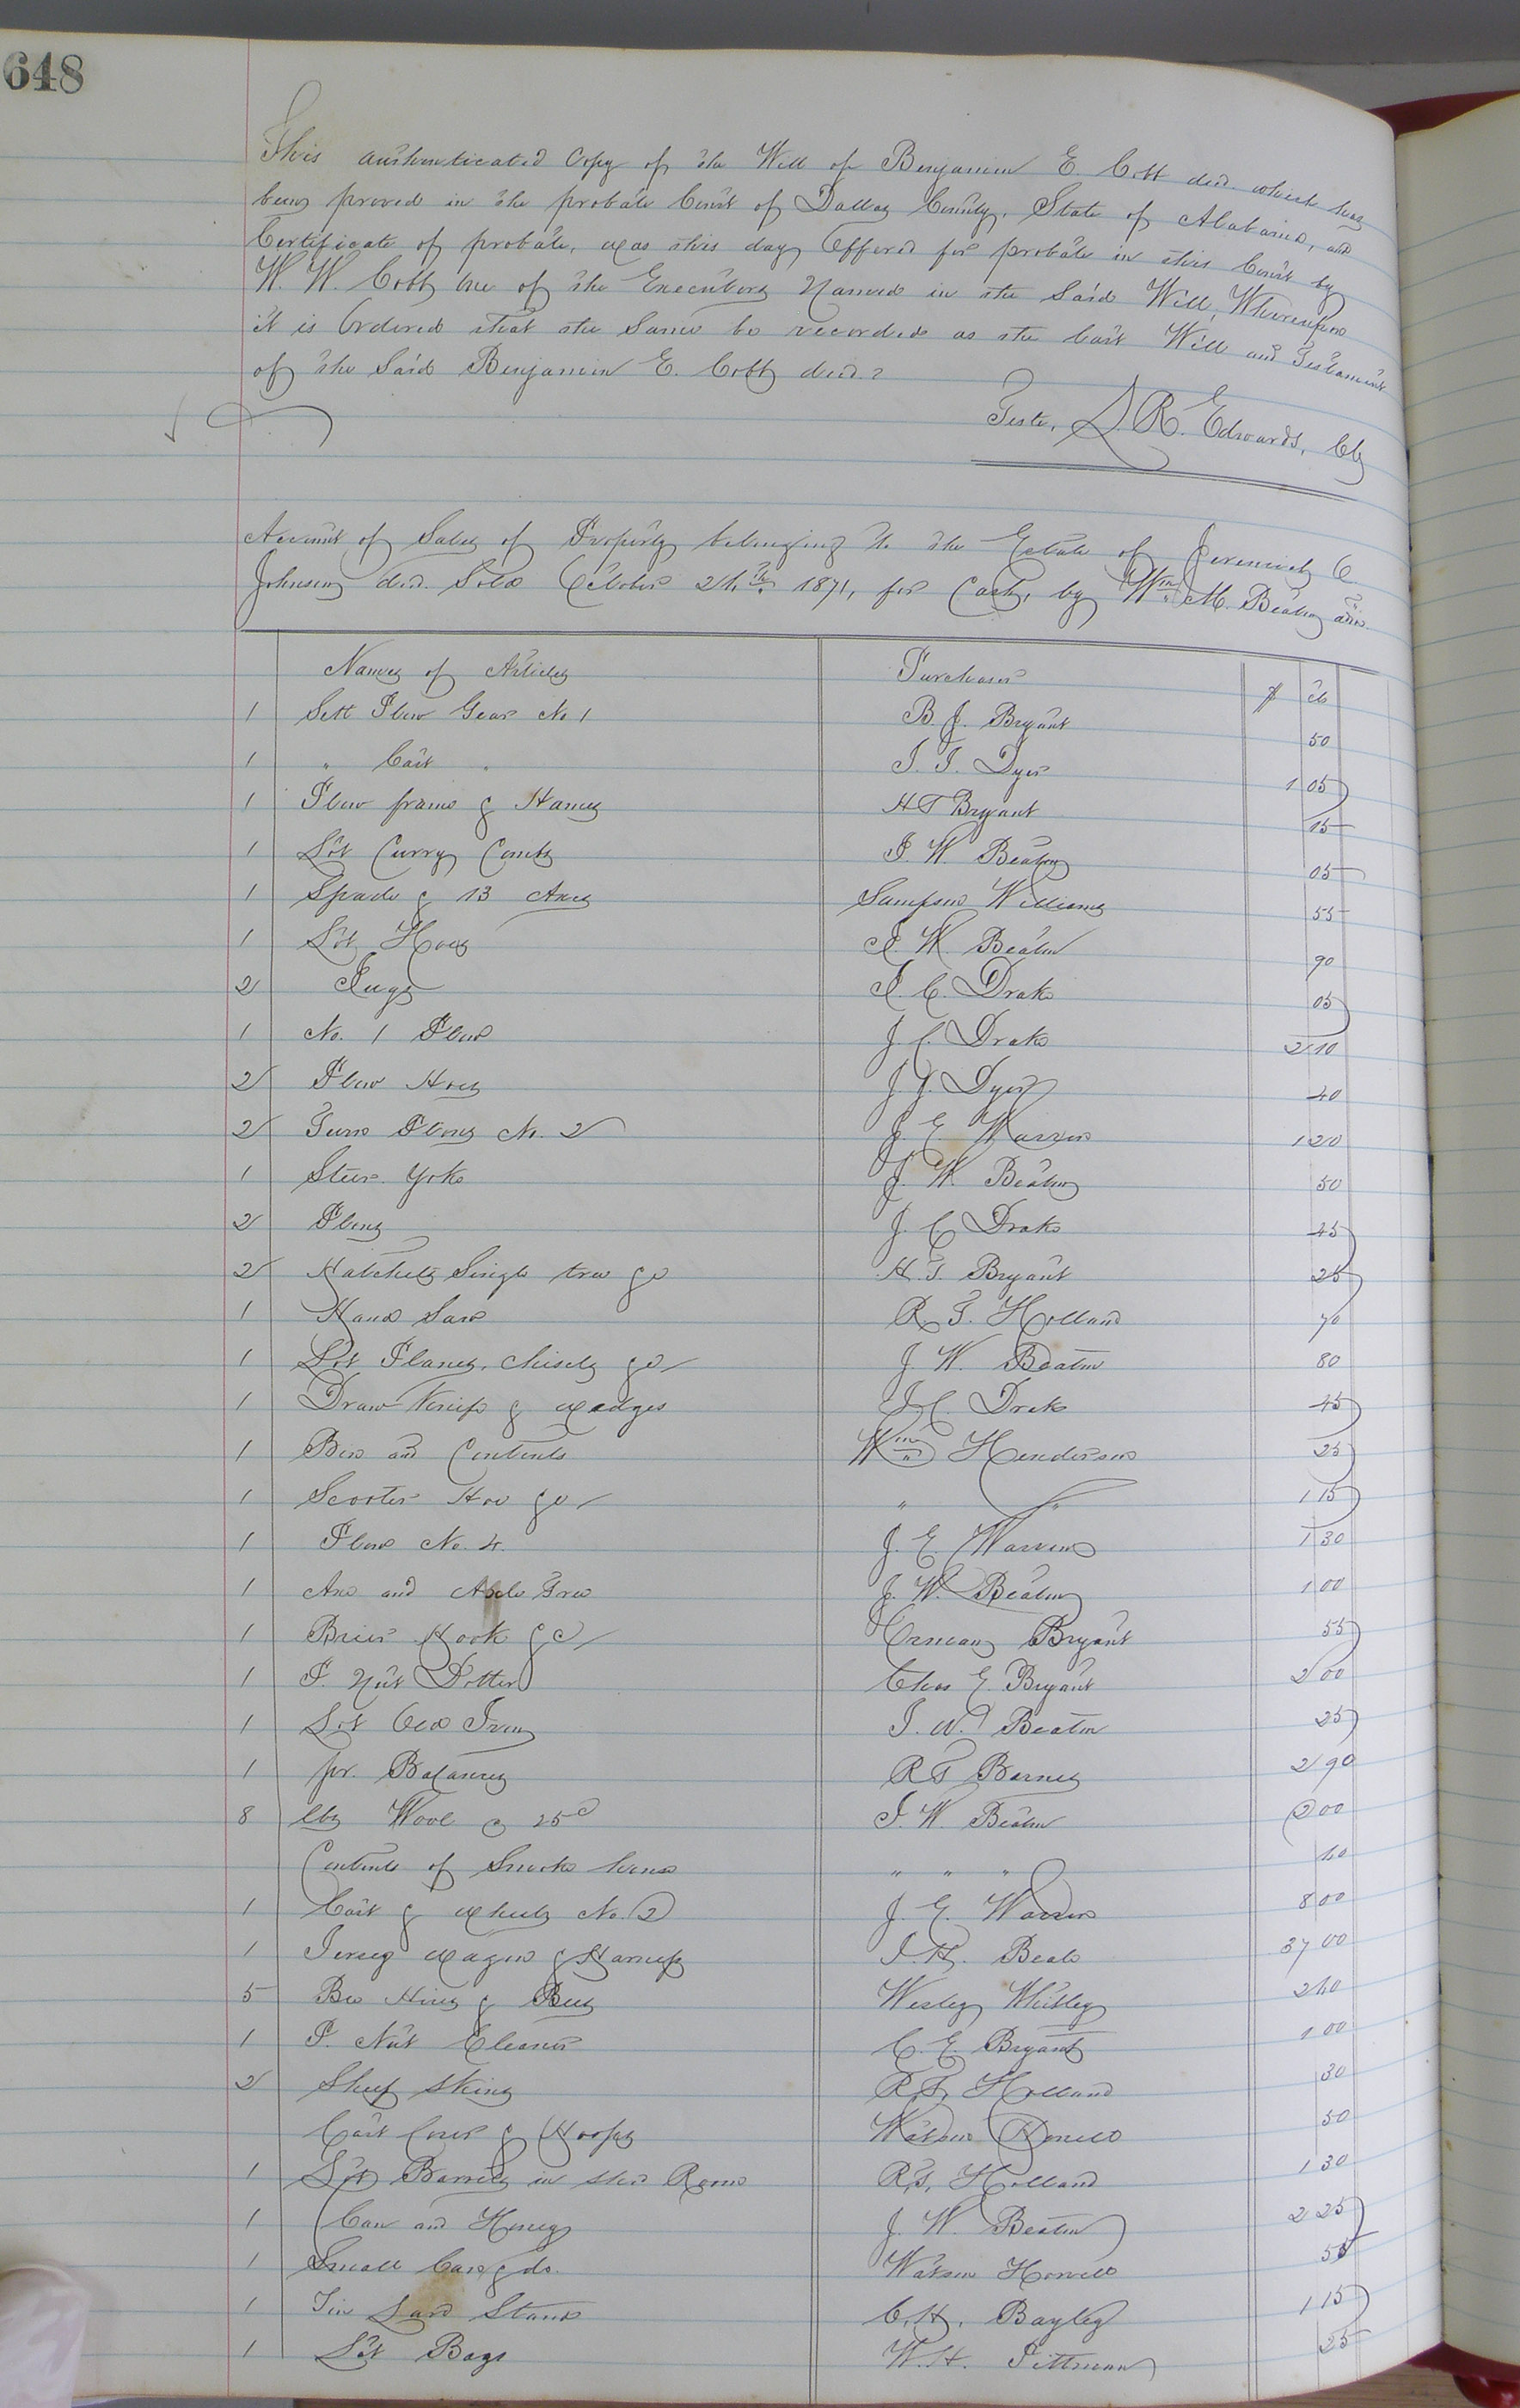 648
This authenticated Copy of the Will of Benjamin E. Cobb decd. which has
been proved in the probate Court of Dallas County, State of Alabama, and
Certificate of probate, was this day Offered for probate in this Court by
W. W. Cobb one of the Executors Named in the Said Will, Whereupon
it is Ordered that the Same be recorded as the last Will and Testament
of the Said Benjamin E. Cobb decd.
Teste, L. R. Edwards, Clk
Account of Sales of Property belonging to the Estate of Jeremiah C.
Johnson decd. Sold October 24th 1871, for Cash, by Wm M. Beaton adm.
Names of Articles Purchaser $ cts
1 Sett Plow Gear No 1 B. J. Bryant 50
1 " Cart " J. J. Dyer 1 05
1 Plow frame & Hames H T Bryant 15
1 Lot Curry Combs J. W. Beaton 05
1 Spade & 13 Axes Sampson Williams 55
1 Lot Hoes J. W. Beaton 90
2 Jugs J. C. Drake 05
1 No. 1 Plow J. C. Drake 2 10
2 Plow Hoes J. J. Dyer 40
2 Turn Plows No. 2 J. E. Warren 1 20
1 Steer Yoke J. W. Beaton 50
2 Plows J. C. Drake 45
2 Hatchets Single tree &c H. T. Bryant 25
1 Hand Saw R. T. Holland 70
1 Lot Planes, chisels &c J. W. Beaton 80
1 Draw Knife & wedges J. C. Drake 45
1 Box and Contents Wm Henderson 25
1 Scooter Hoe &c " " 1 15
1 Plow No. 4. J. E. Warren 1 30
1 Axe and Axle Tree J. W. Beaton 1 00
1 Brier Hook &c Bryant 55
1 P. Nut Chas E. Bryant 2 00
1 Lot Old Iron J. W. Beaton 25
1 pr. Balances R T Barnes 2 90
8 lbs Wool @ 25c J. W. Beaton 2 00
Contents of Smoke house " " " 40
1 Cart & wheels No. 2 J. E. Warren 8 00
1 Jersey wagon & Harness J. H. Beale 37 00
5 Bee Hives & Bees Wesley Whitley 2 40
1 P. Nut Cleaner C. E. Bryant 1 00
2 Sheep Skins R. T. Holland 30
Cart Cover & Hoops Watson Howell 50
1 Lot Barrels in Shed Room R. T. Holland 1 30
1 Can and Honey J. W. Beaton 2 25
1 Small Can & do. Watson Howell 55
1 Tin Lard Stand C. H. Bayley 1 15
1 Lot Bags W. H. Pittman 25